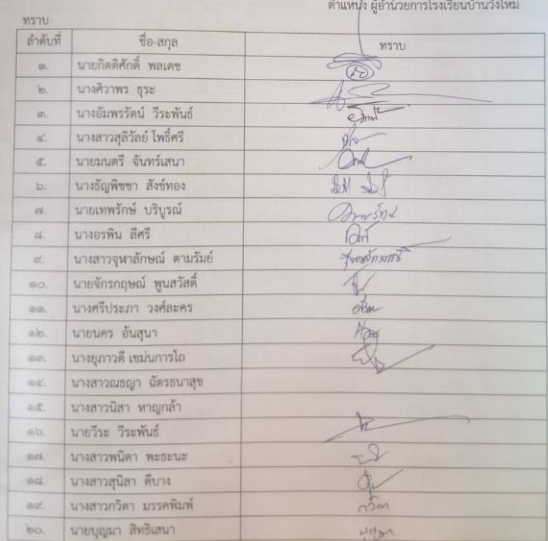 ตำแหน่ง ผู้อำนวยการโรงเรียนบ้านวังใหม่
ทราบ
ลำดับที่ ชื่อ-สกุล ทราบ
๑. นายกิตติศักดิ์ พลเดช
๒. นางศิวาพร ธุระ
๓. นางอัมพรรัตน์ วีระพันธ์
๔. นางสาวสุลิวัลย์ โพธิ์ศรี
๕. นายมนตรี จันทร์เสนา
๖. นางธัญพิชชา สังข์ทอง
๗. นายเทพรักษ์ บริบูรณ์
๘. นางอรพิน ลีศรี
๙. นางสาวจุฬาลักษณ์ ตามรัมย์
๑๐. นายจักรกฤษณ์ พูนสวัสดิ์
๑๑. นางศรีประภา วงศ์ละคร
๑๒. นายนคร อันสุนา
๑๓. นางยุภาวดี เขม่นการไถ
๑๔. นางสาวณธญา ฉัตรธนาสุข
๑๕. นางสาวนิสา หาญกล้า
๑๖. นายวีระ วีระพันธ์
๑๗. นางสาวพนิดา พะธะนะ
๑๘. นางสาวสุนิสา ดีบาง
๑๙. นางสาวกวิตา มรรคพิมพ์ กวิตา
๒๐. นายบุญมา สิทธิเสนา บุญมา